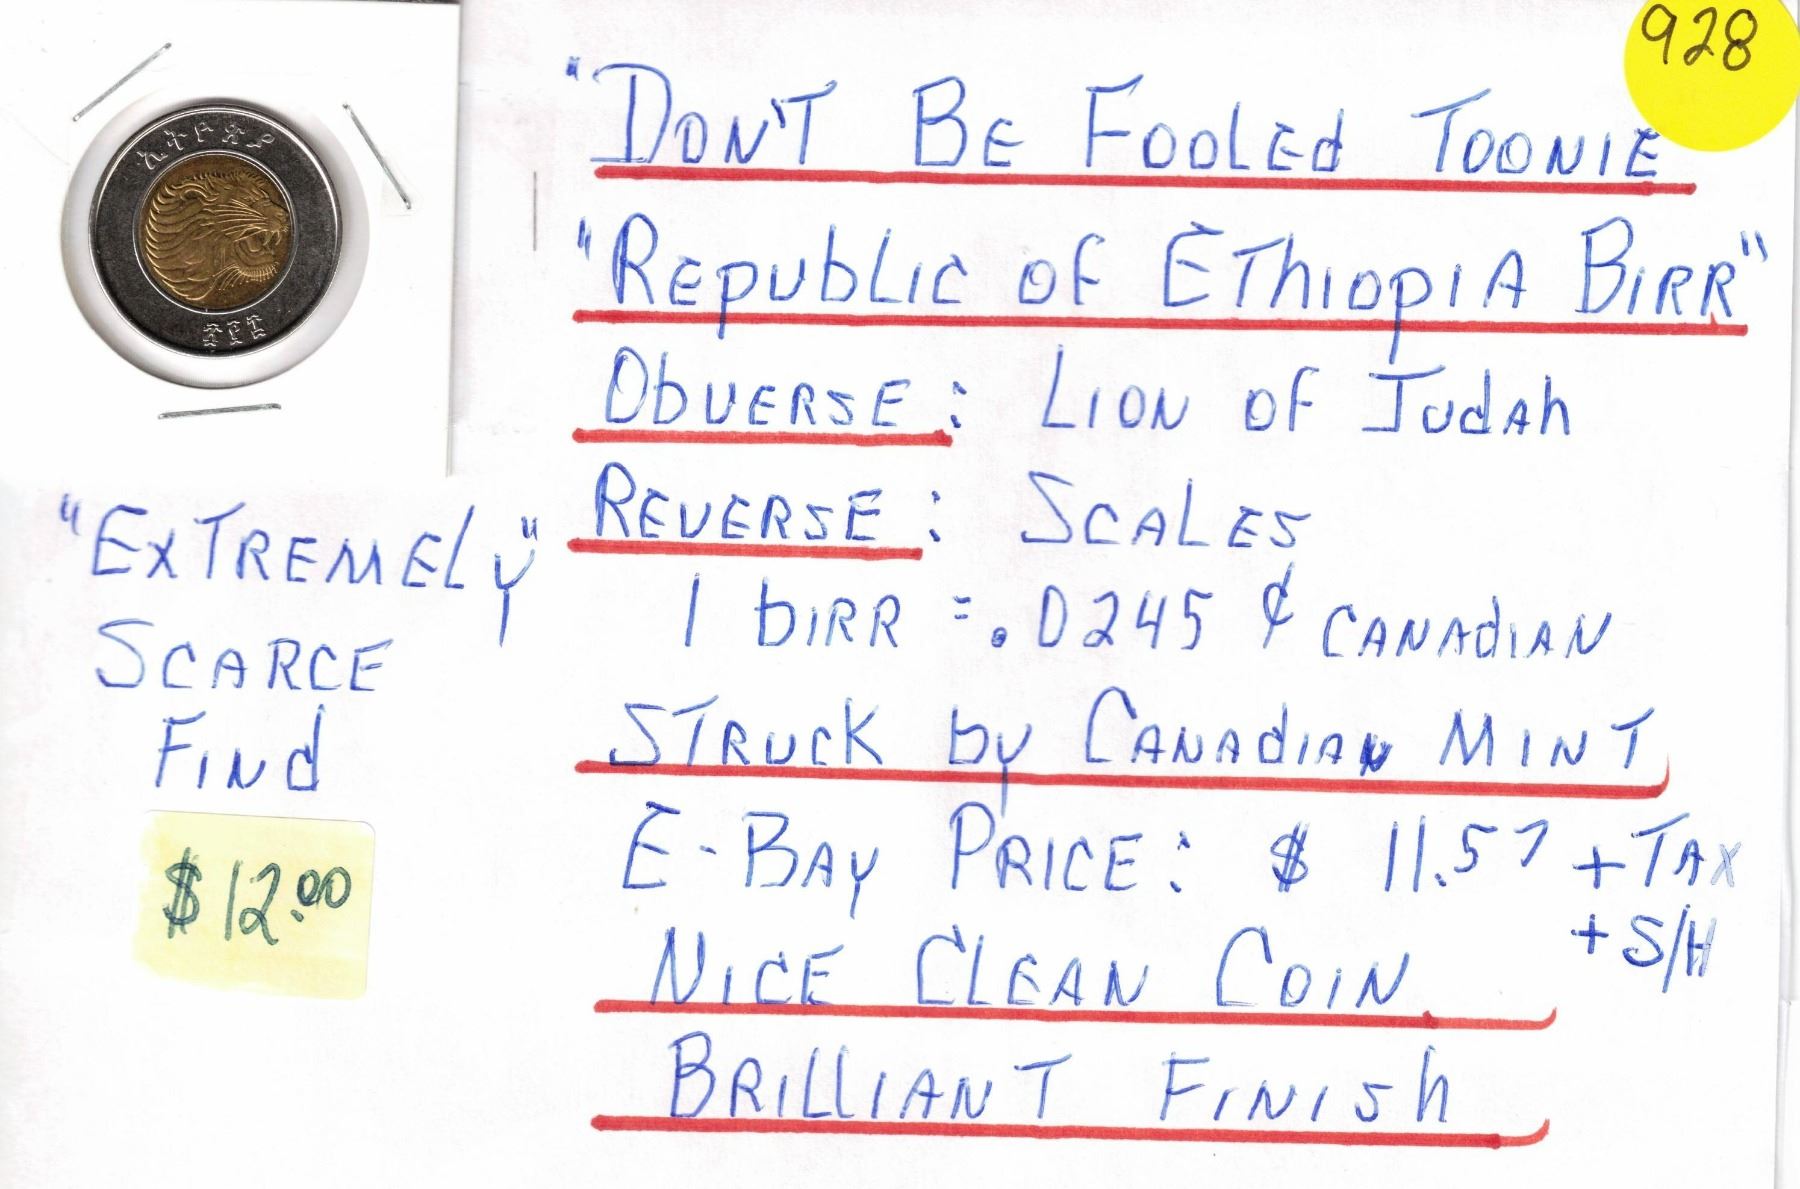 928
ኢትዮጵያ
፳፻፪
"DON'T BE FOOLED TOONIE
"REPUBLIC OF ETHIOPIA BIRR"
OBVERSE: LION OF JUDAH
REVERSE: SCALES
1 BIRR = .0245 ¢ CANADIAN
STRUCK by CANADIAN MINT
E-BAY PRICE: $ 11.57 + TAX
+ S/H
NICE CLEAN COIN
BRILLIANT FINISH
"EXTREMELY"
SCARCE
FIND
$12.00